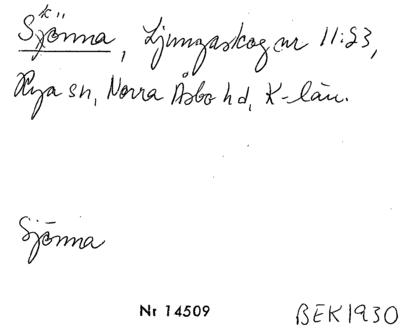 Skönna, Ljungaskog nr 11:23,
Rya sn, Norra Åsbo hd, K-län.
Sjönna
Nr 14509 BEK1930